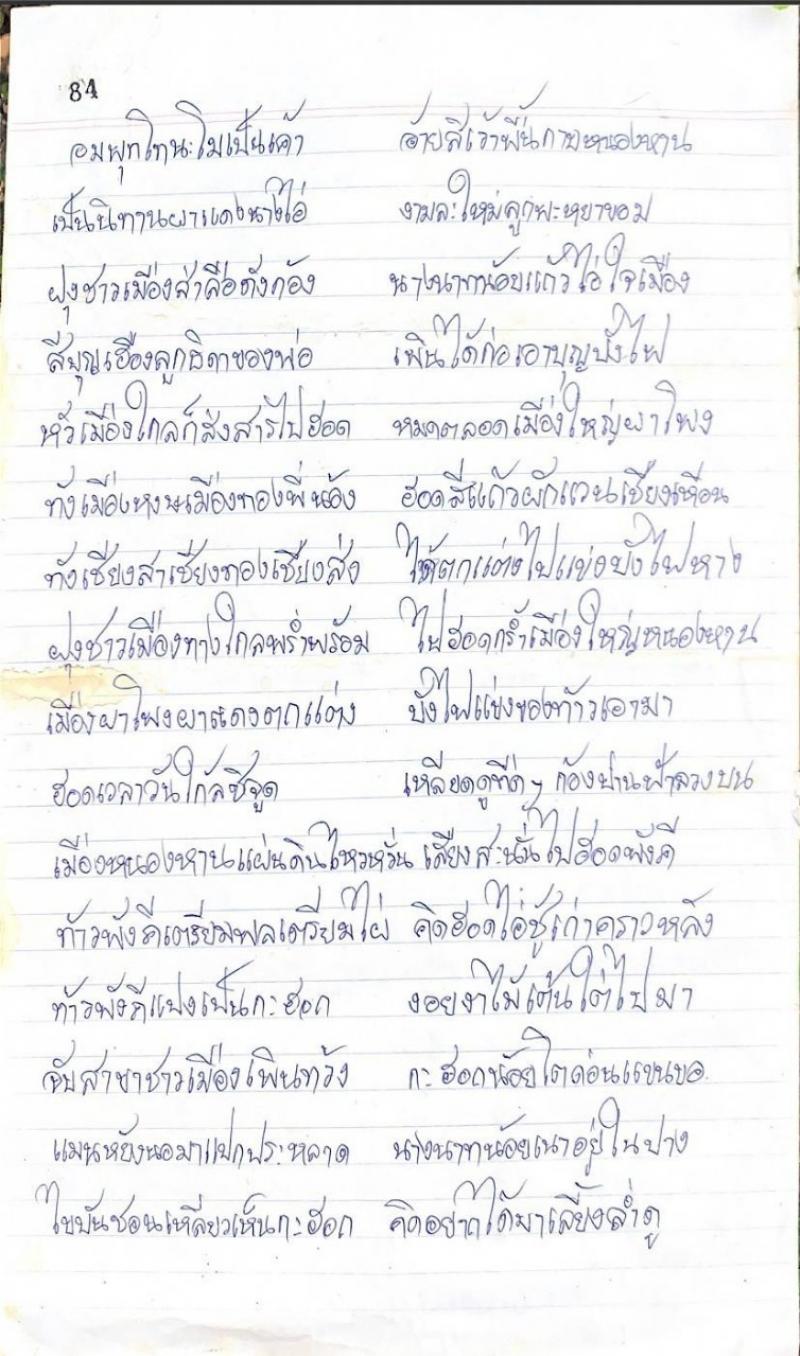 84
อมพุทโทนะโมเป็นเค้า อ้ายสิเว้าพื้นกาบหนองหาน
เป็นนิทานผาแดงนางไอ่ งามละใหม่ลูกพะหยาขอม
ฝุงชาวเมืองส่าลือดังก้อง นางนาทน้อยแก้วไอ่ใจเมือง
สิบุญเฮืองลูกธิดาของพ่อ เพินได้ก่อเอาบุญบั้งไฟ
หัวเมืองไกลก็ส่งสารไปฮอด หมดตลอดเมืองใหญ่ผาโพง
ทั้งเมืองหงษเมืองทองพี่น้อง ฮอดสีแก้วผักแวนเชียงเหียน
ทั้งเชียงสาเชียงทองเชียงส่ง ได้ตกแต่งไปแข่งบั้งไฟหาง
ฝุงชาวเมืองทางไกลพร่ำพร้อม ไปฮอดกร้ำเมืองใหญ่หนองหาน
เมืองผาโพงผาแดงตกแต่ง บั้งไฟแข่งของท้าวเอามา
ฮอดเวลาวันใกล้ชิจูด เหลียดดูทืดๆ ก้องย่านฟ้าลวงบน
เมืองหนองหานแผ่นดินไหวหวั่น เสียงสะนั่นไปฮอดพังคี
ท้าวพังคีเตรียมพลเตรียมไผ่ คิดฮอดไอ่ชู้เก่าคราวหลัง
ท้าวพังคีแปงเป็นกะฮอก งอยงาไม้เต้นใต่ไปมา
จับสาขาชาวเมืองเพินทวัง กะฮอกน้อยไตด่อนแขนขอ
แมนหยังนอมาแปกประหลาด นางนาทน้อยเนาอยู่ในปาง
ไขบันชอนเหลียวเห็นกะฮอก คิดอยากได้มาเลี้ยงล่ำดู